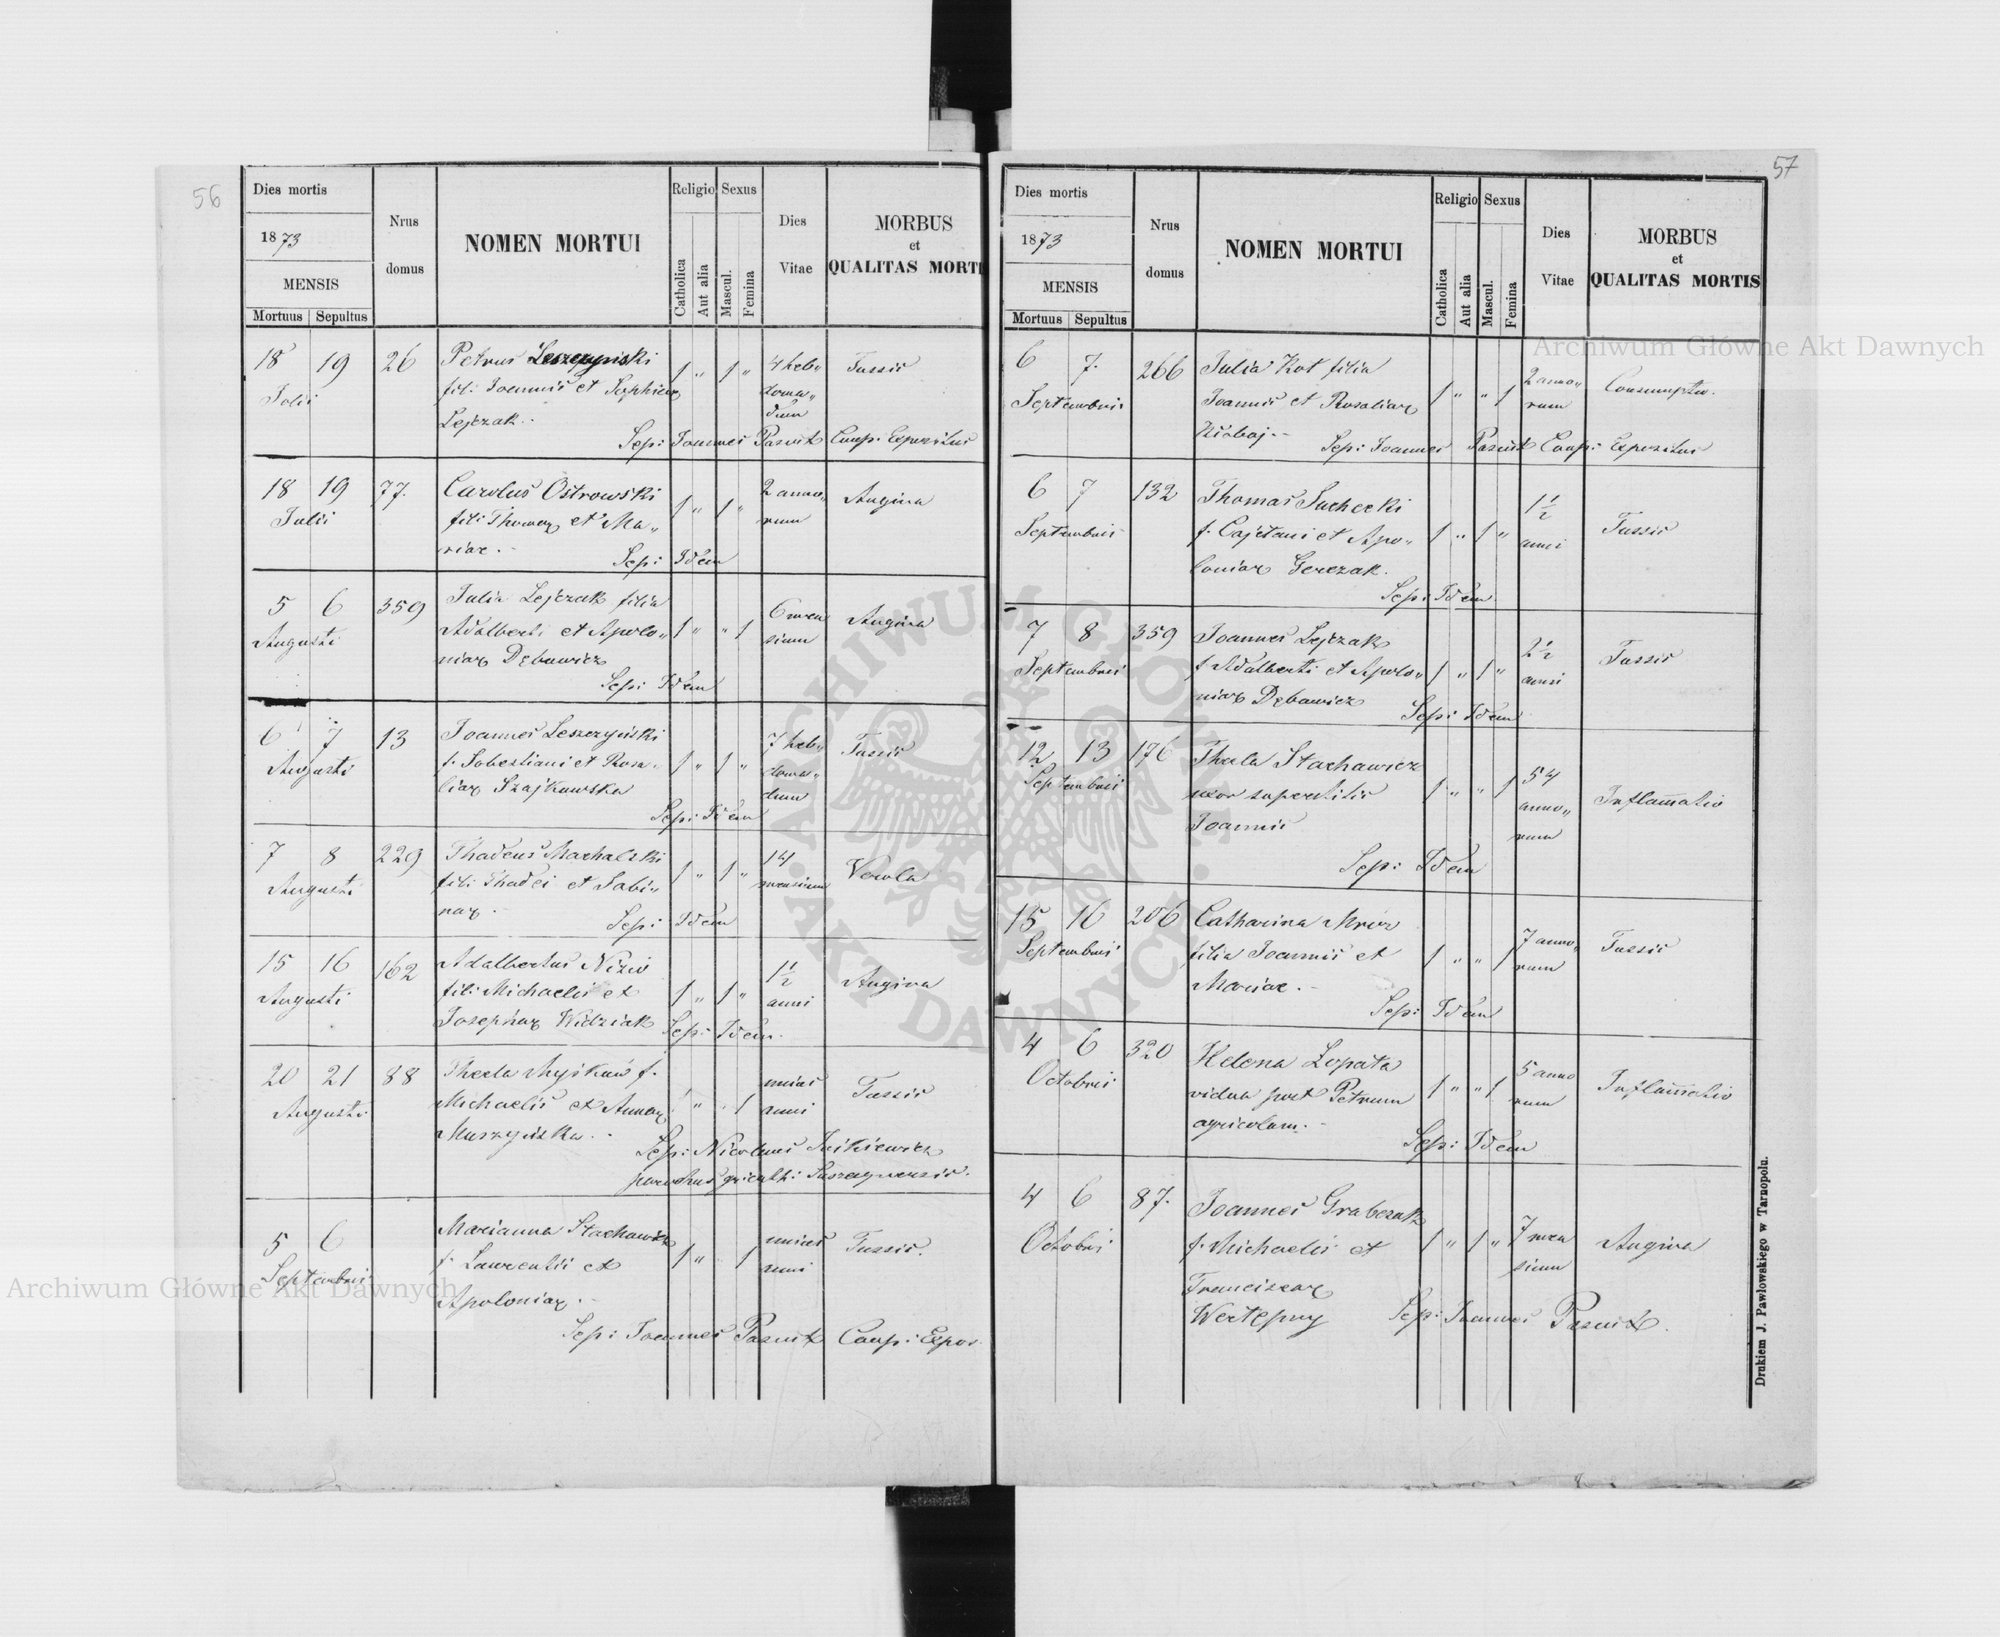 56
Dies mortis
1873
MENSIS
Mortuus Sepultus
Nrus
domus
NOMEN MORTUI
Religio Sexus
Catholica
Aut alia
Mascul.
Femina
Dies
Vitae
MORBUS
et
QUALITAS MORTI
18 19 26 Petrus Leszczyński 1 „ 1 „ 4 heb„ Tussis
Julii fil: Joannis et Sophiae doma„
Lejczak.- dum
Sep: Joannes Paszuk Coop: Expositus
18 19 77. Carolus Ostrowski 1 „ 1 „ 2 anno„ Angina
Julii fil: Thomae et Ma„ rum
riae.-
Sep: Idem
5 6 359 Julia Lejczak filia 1 „ „ 1 6 men Angina
Augusti Adalberti et Apolo„ sium
niae Dębowicz
Sep: Idem
6 7 13 Joannes Leszczyński 1 „ 1 „ 7 heb„ Tussis
Augusti f. Sobestiani et Rosa„ doma„
liae Szajkowska dum
Sep: Idem
7 8 229 Thadeus Machalski 1 „ 1 „ 14 Verola
Augusti fil: Thadei et Sabi„ mensium
nae.-
Sep: Idem
15 16 162 Adalbertus Nizio 1 „ 1 „ 1½ Angina
Augusti fil: Michaelis et anni
Josephae Widziak Sep: Idem.
20 21 88 Thecla Myśków f. 1 „ „ 1 unius Tussis
Augusti Michaelis et Annae anni
Muszyńska.-
Sep: Nicolaus
parochus
5 6 Marianna Stachowicz 1 „ „ 1 unius Tussis.
Septembris f. Laurentii et anni
Apoloniae.-
Sep: Joannes Paszuk Coop: Expos.
57
Dies mortis
1873
MENSIS
Mortuus Sepultus
Nrus
domus
NOMEN MORTUI
Religio Sexus
Catholica
Aut alia
Mascul.
Femina
Dies
Vitae
MORBUS
et
QUALITAS MORTIS
6 7. 266 Julia Kot filia 1 „ „ 1 2 anno„ Consumptio.
Septembris Joannis et Rosaliae rum
Sep: Joannes Paszuk Coop: Expositus
6 7 132 Thomas Suchecki 1 „ 1 „ 1½ Tussis
Septembris f. Cajetani et Apo„ anni
loniae Gerczak.
Sep: Idem.
7 8 359 Joannes Lejczak 1 „ 1 „ 2½ Tussis
Septembris f. Adalberti et Apolo„ anni
niae Dębowicz
Sep: Idem
12 13 176 Thecla Stachowicz 1 „ „ 1 54 Inflamatio
Septembris uxor superstitis anno„
Joannis rum
Sep: Idem
15 16 206 Catharina Mroz 1 „ „ 1 7 anno„ Tussis
Septembris filia Joannis et rum
Mariae.-
Sep: Idem
4 6 320 Helena Łopata 1 „ „ 1 5 anno Inflamatio
Octobris vidua post Petrum rum
agricolam.-
Sep: Idem
4 6 87. Joannes Grabczak 1 „ 1 „ 7 men Angina
Octobri f. Michaelis et sium
Franciscae
Wertepny Sep: Joannes Paszuk.
Drukiem J. Pawłowskiego w Tarnopolu.
Archiwum Główne Akt Dawnych
Archiwum Główne Akt Dawnych
ARCHIWUM GŁÓWNE AKT DAWNYCH